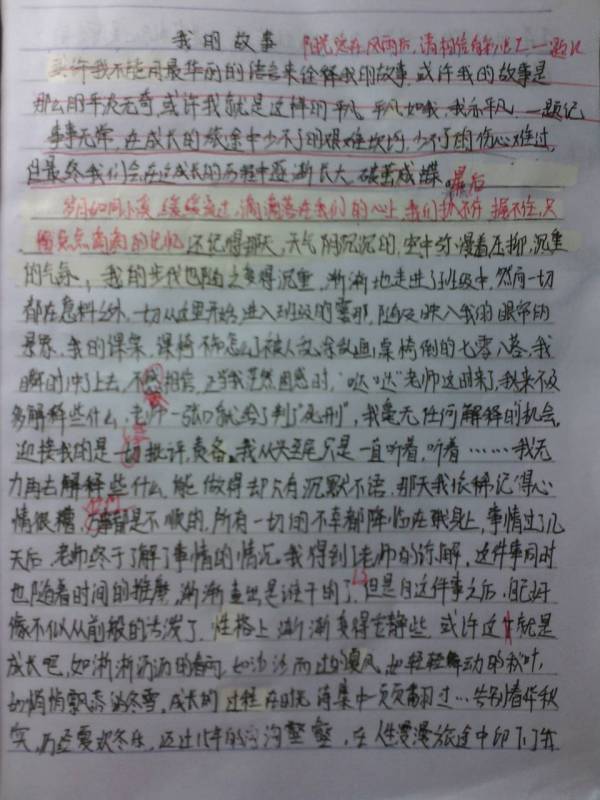 我的故事 阳光总在风雨后,请相信有彩虹 一题记
或许我不能用最华丽的语言来诠释我的故事,或许我的故事是
那么的平淡无奇,或许我就是这样的平凡,平凡如我,我亦平凡 一题记
事事无常,在成长的旅途中少不了的艰难坎坷,少不了的伤心难过,
但最终我们会在这成长的历程中逐渐长大,破茧成蝶。最后
岁月如同小溪,缓缓流过,滴滴落在我们的心上,我们 握不住,只
点点滴滴的记忆 还记得那天,天气阴沉沉的,空中弥漫着压抑,沉重
的气氛,我的步伐也随之变得沉重,渐渐地走进了班级中,然而一切
都在意料之外,一切从这里开始,进入班级的霎那,随及映入我的眼帘的
景象,我的课桌,课椅不知怎么了被人 桌椅倒的七零八落,我
瞬时冲了上去,不 相信,正当我茫然困惑时,“哒哒”老师这时来了,我来不及
多解释些什么,老师一张口就给了判了“死刑”,我毫无任何解释的机会,
迎接我的是一切批评,责备。我从头至尾只是一直听着,听着……我无
力再去解释些什么,能做得却只有沉默不语,那天我依稀记得心
情很糟, 是不顺的,所有一切的不幸都降临在我身上,事情过了几
天后,老师终于了解了事情的情况,我得到了老师的谅解,这件事同时
也随着时间的推磨,渐渐查出是谁干的了,但是自这件事之后,我
像不似从前般的活泼了,性格上渐渐变得安静些,或许这就是
成长吧,如淅淅沥沥的春雨,如沙沙而过的夏风,如轻轻舞动的秋叶,
如悄悄飘落的冬雪,成长的过程在时光诗集中一页页翻过…告别春华秋
实,历经夏炎冬寒,迈过几年的沟沟壑壑,在人生漫漫旅途中印下了我